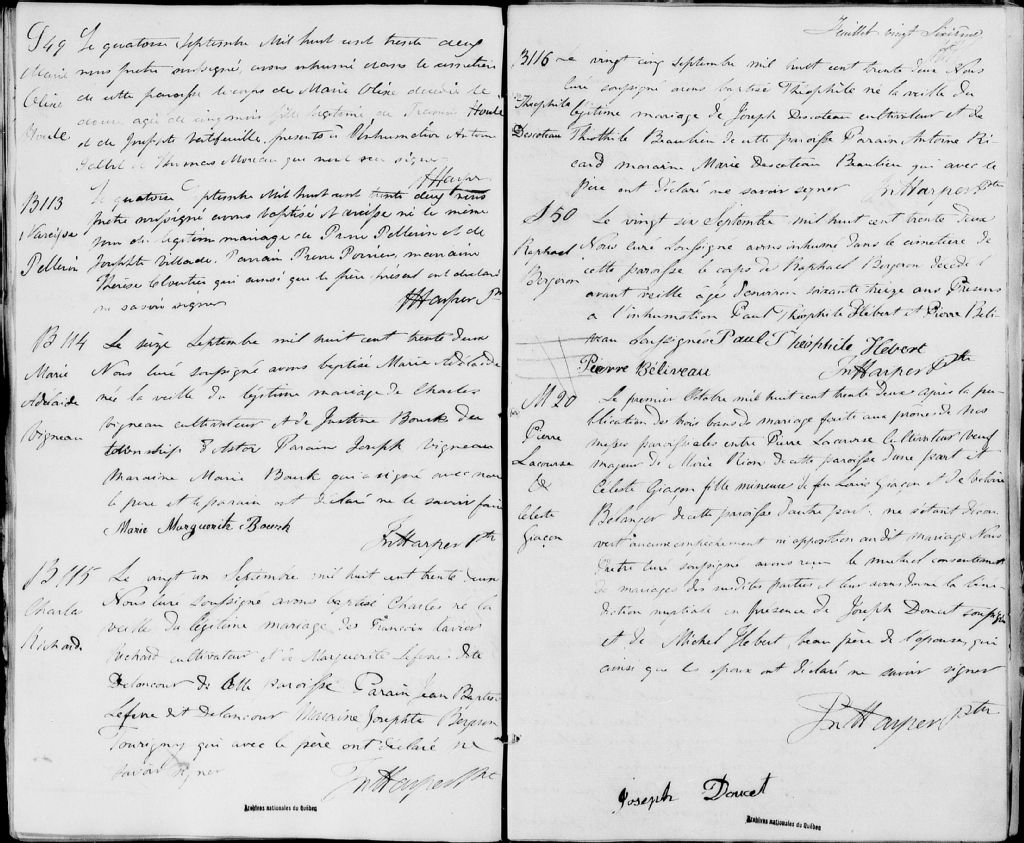 S49
Marie
Olive
Houle
Le quatorze Septembre Mil huit cent trente deux
nous prêtre soussigné, avons inhumé dans le cimetière
de cette paroisse le corps de Marie Olive décédée le
douze agée de cinq mois fille légitime de François Houle
et de Josephte Vertefeuille, presents à l'inhumation Antoine
et Thomas Moreau qui n'ont su signer
JHarper
B113
Narcisse
Pellerin
Le quatorze Septembre Mil huit cent trente deux nous
prêtre soussigné avons baptisé Narcisse né le même
jour du légitime mariage de Pierre Pellerin et de
Josephte Parrain Pierre Poirier, marraine
Therese qui ainsi que le père present ont déclaré
ne savoir signer
JHarper Ptre
B114
Marie
Adelaide
Vigneau
Le seize Septembre mil huit cent trente deux
Nous curé soussigné avons baptisé Marie Adelaide
née la veille du légitime mariage de Charles
Vigneau cultivateur et de Justine Bourk du
township d'Aston Parain Joseph Vigneau
Maraine Marie Bourk qui a signé avec nous
le pere et le parain ont déclaré ne le savoir faire
Marie Marguerite Bourk
Jn Harper Ptre
B115
Charles
Richard
Le vingt un Septembre mil huit cent trente deux
Nous curé soussigné avons baptisé Charles né la
veille du légitime mariage de François Xavier
Richard cultivateur et de Marguerite Lefevre dite
Delancour de cette paroisse Parain Jean Baptiste
Lefevre dit Delancour Maraine Josephte
Tourigny qui avec le père ont déclaré ne
savoir signer
Jn Harper Ptre
Archives nationales du Québec
Feuillet vingt Sixieme
B116
Theophile
Descoteau
Le vingt cinq Septembre mil huit cent trente deux Nous
curé soussigné avons baptisé Théophile né la veille du
légitime mariage de Joseph Descoteau cultivateur et de
Théotiste Beaulieu de cette paroisse Parain Antoine Ri
card maraine Marie Descoteau Beaulieu qui avec le
père ont déclaré ne savoir signer Jn Harper Ptre
S50
Raphael
Bergeron
Le vingt six Septembre mil huit cent trente deux
Nous curé soussigné avons inhumé dans le cimetière de
cette paroisse le corps de Raphael Bergeron décédé l'
avant veille âgé d'environ soixante treize ans Presens
a l'inhumation Paul Théophile Hébert et Pierre Béli-
veau Soussignés Paul Théophile Hebert
Pierre Béliveau Jn Harper Ptre
M20
Pierre
Lacourse
&
Celeste
Giaçon
Le premier Octobre mil huit cent trente deux après la pu
blication des trois bans de mariage faite aux prones de nos
messes paroissiales entre Pierre Lacourse cultivateur veuf
majeur de Marie Rion de cette paroisse d'une part et
Celeste Giaçon fille mineure de feu Louis Giaçon et de
Belanger de cette paroisse d'autre part. ne s'étant decou
vert aucun empechement ni opposition au dit mariage Nous
curé soussigné avons reçu le mutuel consentement
de mariages des susdites parties et leur avons donné la béné
diction nuptiale en présence de Joseph Doucet soussigné
et de Michel Hebert, beau père de l'epouse, qui
ainsi que les epoux ont déclaré ne savoir signer
Jn Harper Ptre
Joseph Doucet
Archives nationales du Québec